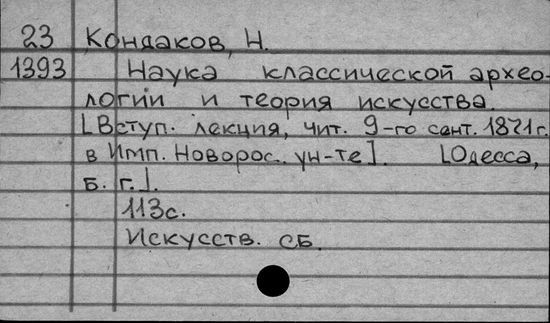 23 Кондаков, Н.
1393 Наука классической архео-
логии и теория искусства.
[Вступ. лекция, чит. 9-го сент. 1871г.
в Имп. Новорос. ун-те]. [Одесса,
б. г.].
113с.
Искусств. сб.